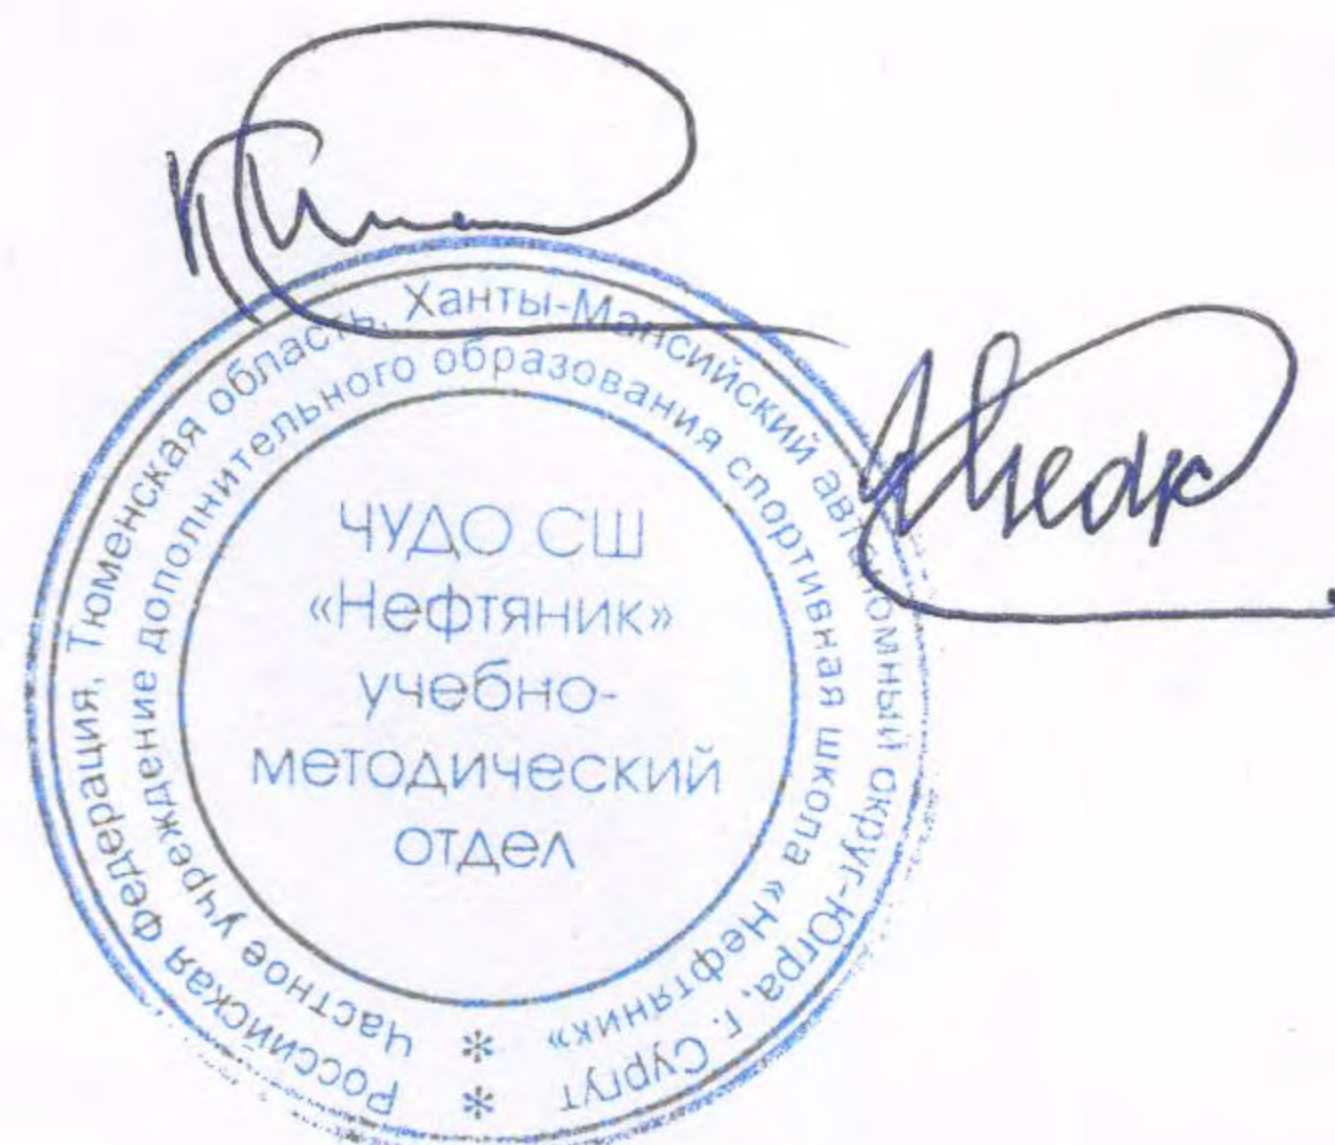 Российская Федерация, Тюменская область, Ханты-Мансийский автономный округ-Югра, г. Сургут *
Частное учреждение дополнительного образования спортивная школа «Нефтяник» *
ЧУДО СШ
«Нефтяник»
учебно-
методический
отдел